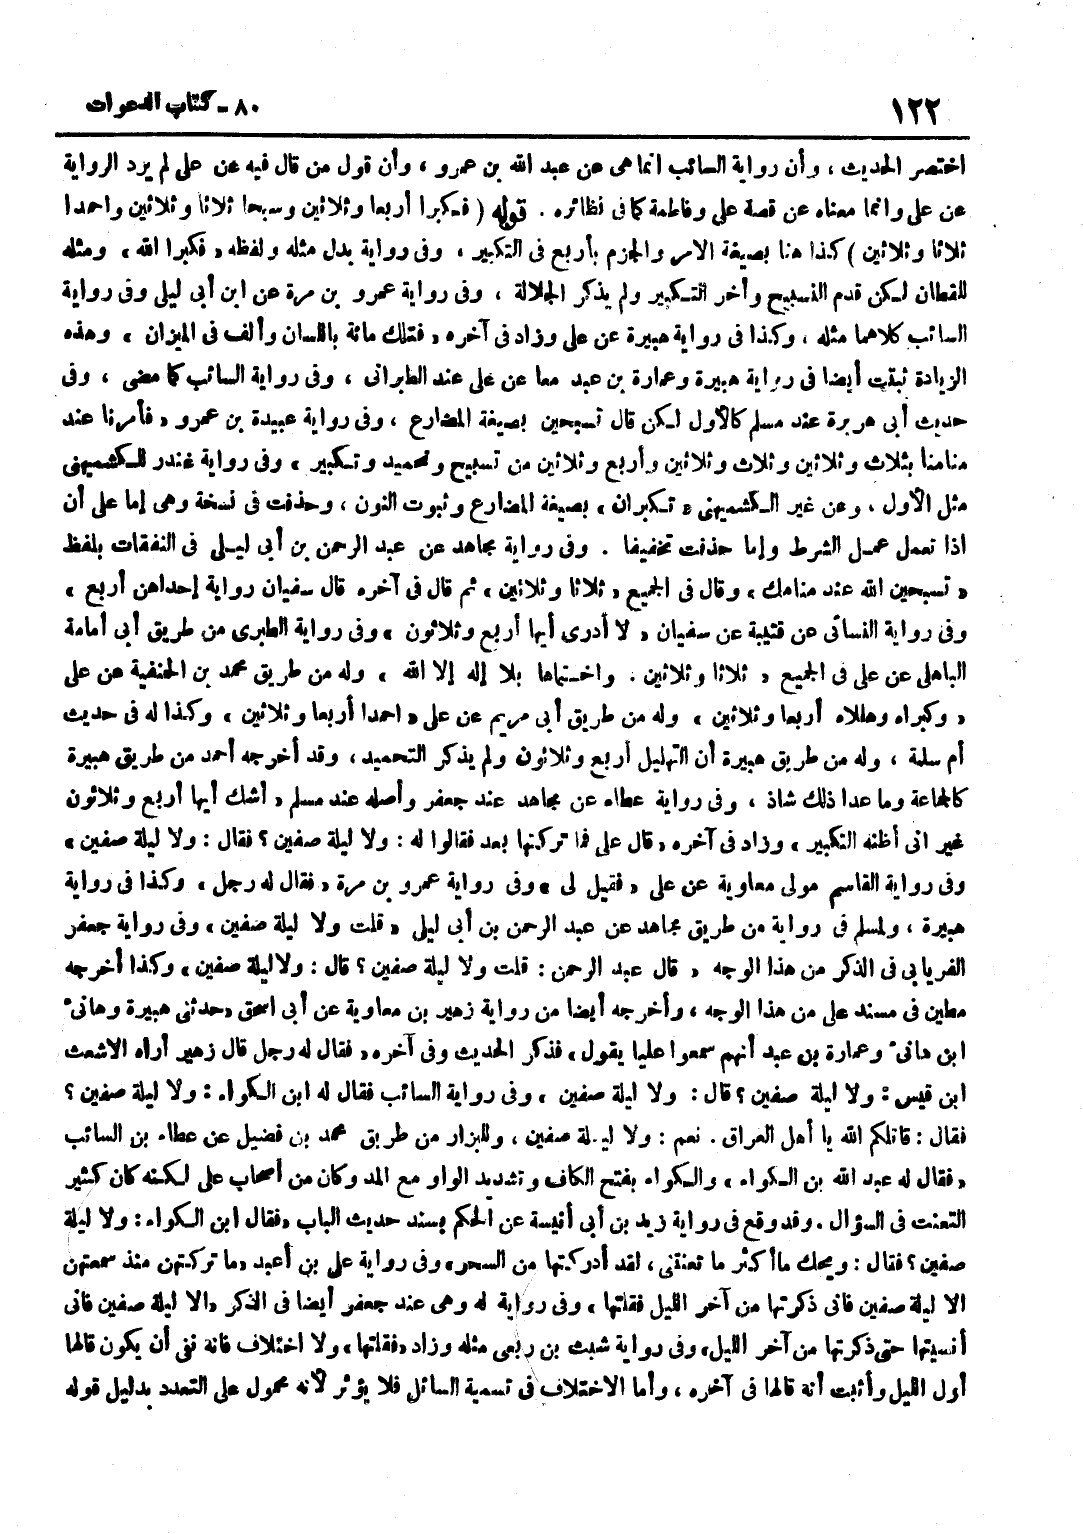 ١٢٢
٨٠ - كتاب الدعوات
اختصر الحديث ، وأن رواية السائب انما هى عن عبد الله بن عمرو ، وأن قول من قال فيه عن على لم يرد الرواية
عن على وانما معناه عن قصة على وفاطمة كما فى نظائره . قوله ( فكبرا أربعا وثلاثين وسبحا ثلاثا وثلاثين واحمدا
ثلاثا وثلاثين ) كذا هنا بصيغة الامر والجزم بأربع فى التكبير ، وفى رواية بدل مثله ولفظه « فكبرا الله » ومثله
للقطان لكن قدم التسبيح وأخر التكبير ولم يذكر الجلالة ، وفى رواية عمرو بن مرة عن ابن أبى ليلى وفى رواية
السائب كلاهما مثله ، وكذا فى رواية هبيرة عن على وزاد فى آخره « فتلك مائة باللسان وألف فى الميزان » وهذه
الزيادة ثبتت أيضا فى رواية هبيرة وعمارة بن عبد معا عن على عند الطبرانى ، وفى رواية السائب كما مضى ، وفى
حديث أبى هريرة عند مسلم كالأول لكن قال تسبحين بصيغة المضارع ، وفى رواية عبيدة بن عمرو « فأمرنا عند
منامنا بثلاث وثلاثين وثلاث وثلاثين وأربع وثلاثين من تسبيح وتحميد وتكبير » وفى رواية غندر للكشميهنى
مثل الأول ، وعن غير الكشميهنى « تكبران » بصيغة المضارع وثبوت النون ، وحذفت فى نسخة وهى إما على أن
اذا تعمل عمل الشرط وإما حذفت تخفيفا . وفى رواية مجاهد عن عبد الرحمن بن أبى ليلى فى النفقات بلفظ
« تسبحين الله عند منامك » وقال فى الجميع « ثلاثا وثلاثين » ثم قال فى آخره قال سفيان رواية إحداهن أربع »
وفى رواية النسائى عن قتيبة عن سفيان « لا أدرى أيها أربع وثلاثون » وفى رواية الطبرى من طريق أبى أمامة
الباهلى عن على فى الجميع « ثلاثا وثلاثين . واختماها بلا إله إلا الله » وله من طريق محمد بن الحنفية عن على
« وكبراه وهللاه أربعا وثلاثين » وله من طريق أبى مريم عن على « احمدا أربعا وثلاثين » وكذا له فى حديث
أم سلمة ، وله من طريق هبيرة أن التهليل أربع وثلاثون ولم يذكر التحميد ، وقد أخرجه أحمد من طريق هبيرة
كالجماعة وما عدا ذلك شاذ ، وفى رواية عطاء عن مجاهد عند جعفر وأصله عند مسلم « أشك أيها أربع وثلاثون
غير انى أظنه التكبير » وزاد فى آخره « قال على فما تركتها بعد فقالوا له : ولا ليلة صفين ؟ فقال : ولا ليلة صفين »
وفى رواية القاسم مولى معاوية عن على « فقيل لى » وفى رواية عمرو بن مرة « فقال له رجل » وكذا فى رواية
هبيرة ، ولمسلم فى رواية من طريق مجاهد عن عبد الرحمن بن أبى ليلى « قلت ولا ليلة صفين » وفى رواية جعفر
الفريابى فى الذكر من هذا الوجه « قال عبد الرحمن : قلت ولا ليلة صفين ؟ قال : ولا ليلة صفين » وكذا أخرجه
مطين فى مسند على من هذا الوجه ، وأخرجه أيضا من رواية زهير بن معاوية عن أبى اسحق « حدثنى هبيرة وهانىء
ابن هانىء وعمارة بن عبد أنهم سمعوا عليا يقول » فذكر الحديث وفى آخره « فقال له رجل قال زهير أراه الاشعث
ابن قيس : ولا ليلة صفين ؟ قال : ولا ليلة صفين » وفى رواية السائب فقال له ابن الكواء : ولا ليلة صفين ؟
فقال : قاتلكم الله يا أهل العراق . نعم : ولا ليلة صفين ، وللبزار من طريق محمد بن فضيل عن عطاء بن السائب
« فقال له عبد الله بن الكواء » والكواء بفتح الكاف وتشديد الواو مع المد وكان من أصحاب على لكنه كان كثير
التعنت فى السؤال . وقد وقع فى رواية زيد بن أبى أنيسة عن الحكم بسند حديث الباب « فقال ابن الكواء : ولا ليلة
صفين ؟ فقال : ويحك ما أكثر ما تعنتنى ، لقد أدركتها من السحر » وفى رواية على بن أعبد « ما تركتهن منذ سمعتهن
الا ليلة صفين فانى ذكرتها من آخر الليل فقلتها » وفى رواية له وهى عند جعفر أيضا فى الذكر « الا ليلة صفين فانى
أنسيتها حتى ذكرتها من آخر الليل » وفى رواية شبث بن ربعى مثله وزاد « فقلتها » ولا اختلاف فانه نفى أن يكون قالها
أول الليل وأثبت أنه قالها فى آخره ، وأما الاختلاف فى تسمية السائل فلا يؤثر لأنه محمول على التعدد بدليل قوله